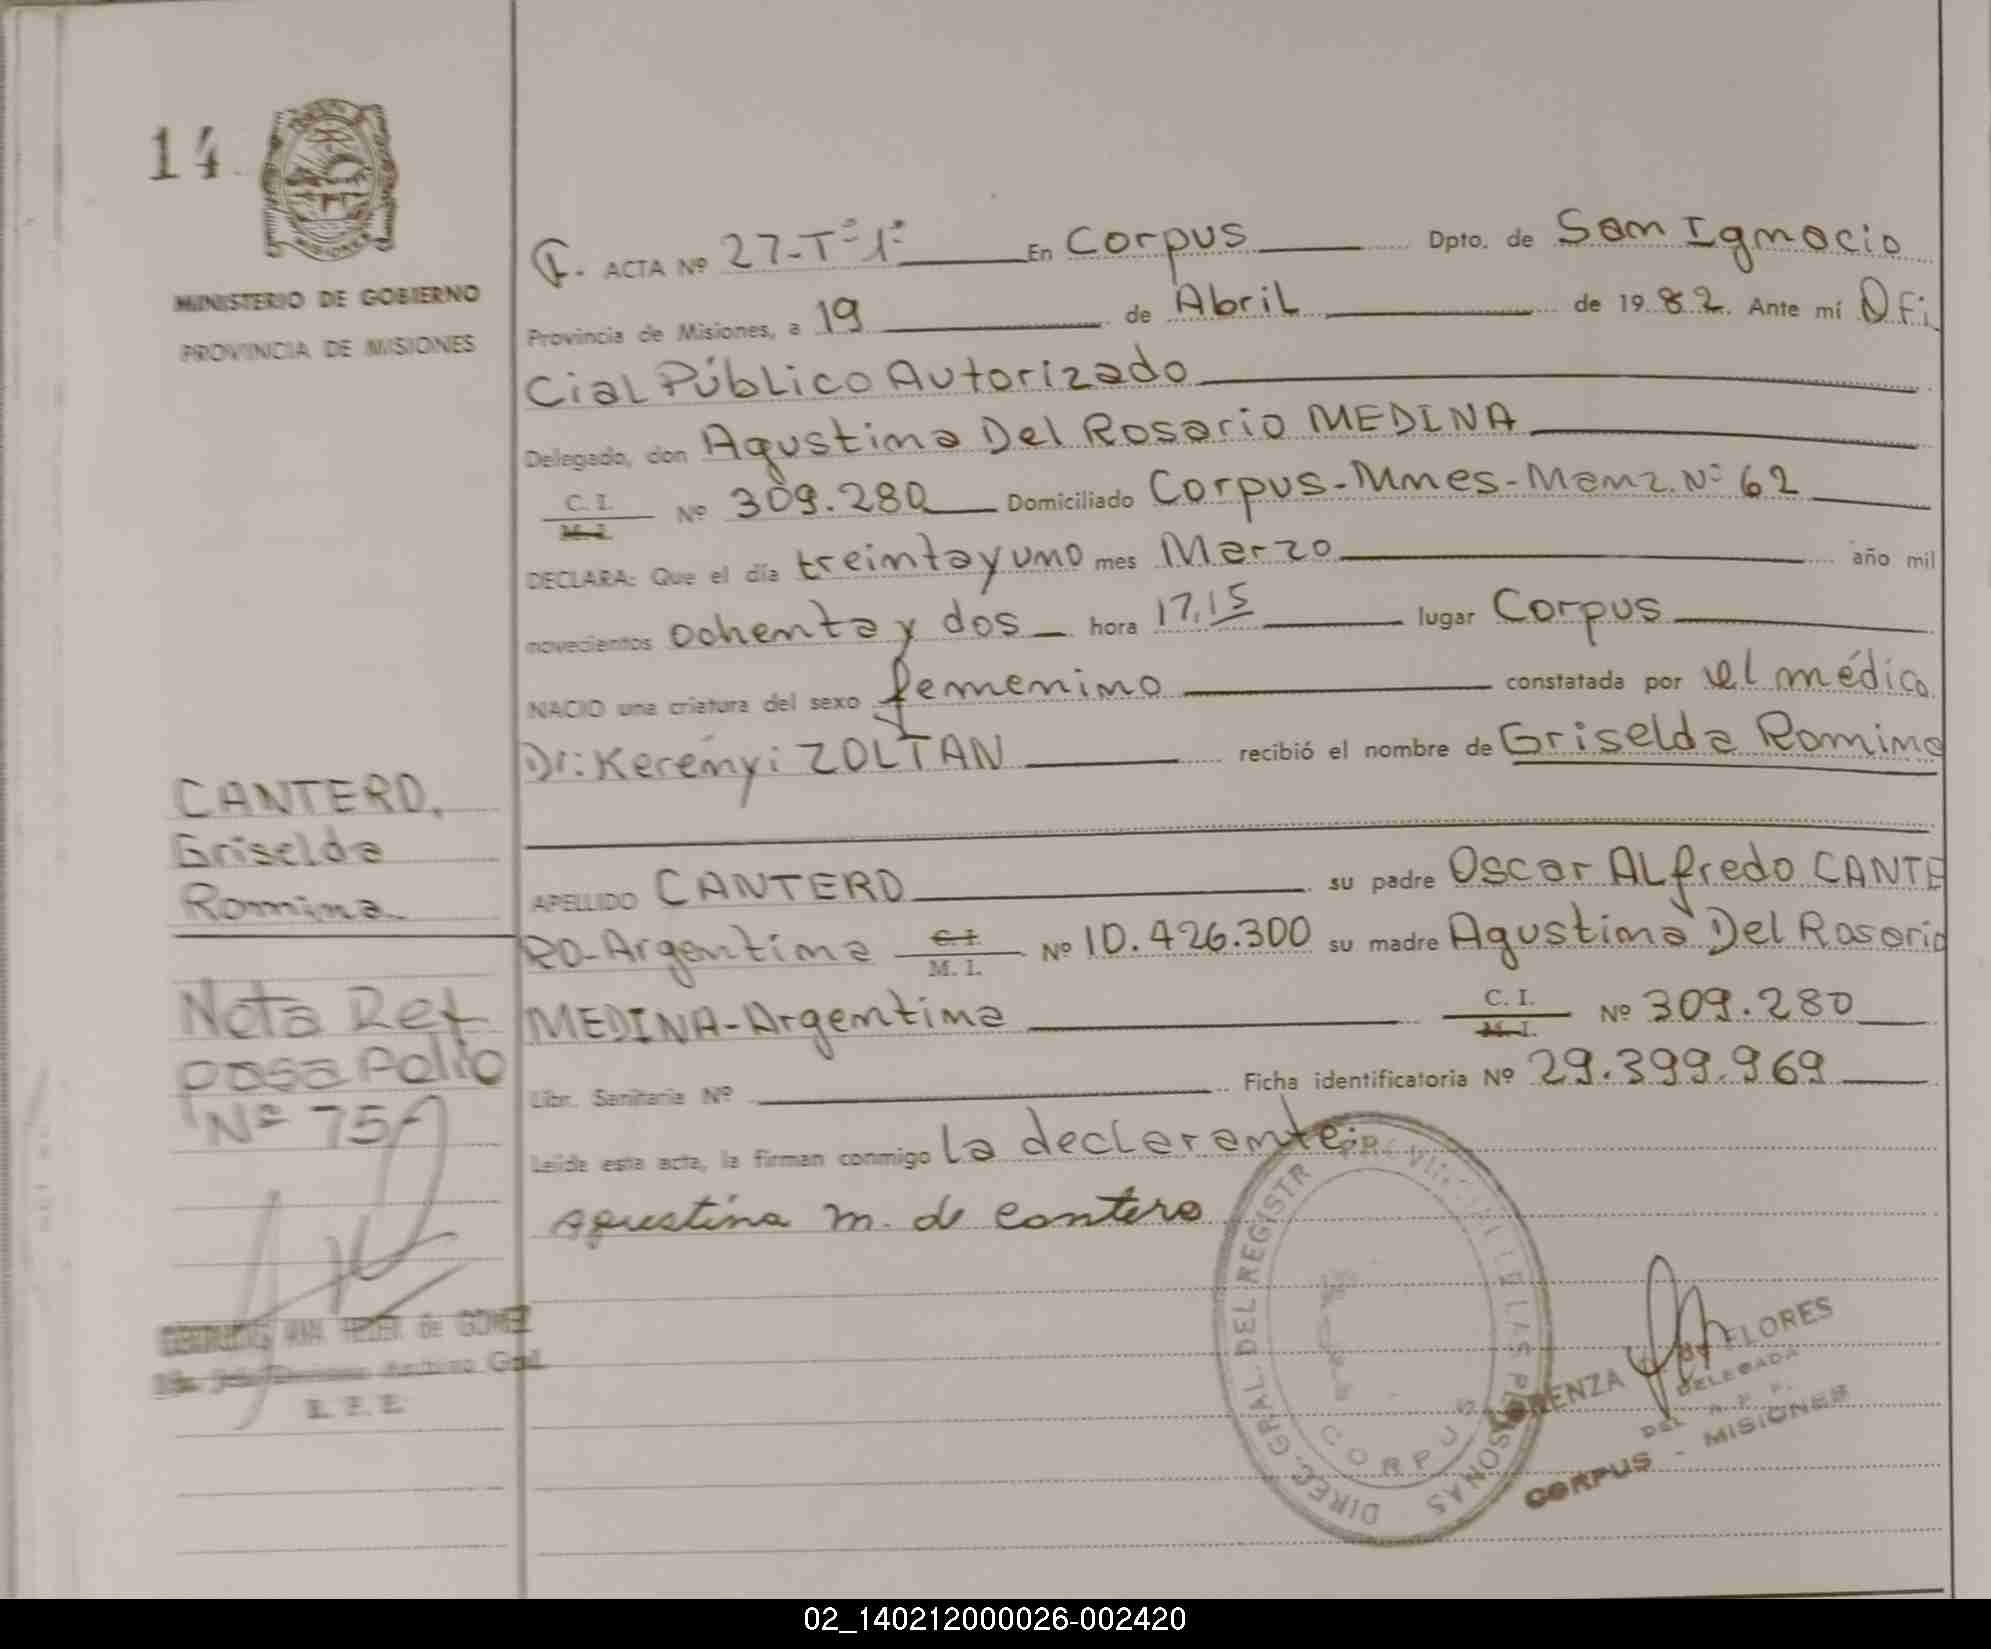 14
MINISTERIO DE GOBIERNO
PROVINCIA DE MISIONES
ACTA Nº 27-Tº1º En Corpus Dpto. de San Ignacio
Provincia de Misiones, a 19 de Abril de 1982. Ante mí Ofi
cial Público Autorizado
Delegado, don Agustina Del Rosario MEDINA
C. I.
M. I. Nº 309.280 Domiciliado Corpus-Mnes-Manz. Nº 62
DECLARA: Que el día treinta y uno mes Marzo año mil
novecientos ochenta y dos hora 17,15 lugar Corpus
NACIO una criatura del sexo femenino constatada por el médico
Dr: Kerényi ZOLTAN recibió el nombre de Griselda Romina
APELLIDO CANTERO su padre Oscar ALfredo CANTE
RO-Argentina C. I.
M. I. Nº 10.426.300 su madre Agustina Del Rosario
MEDINA-Argentina C. I.
M. I. Nº 309.280
Libr. Sanitaria Nº Ficha identificatoria Nº 29.399.969
Leída esta acta, la firman conmigo la declarante.
agustina m. de cantero
CANTERO,
Griselda
Romina
Nota Ref
pasa folio
Nº 75
de GOMEZ
DIREC. GRAL. DEL REGISTR PROVINCIAL DE LAS PERSONAS
CORPUS
LORENZA FLORES
DELEGADA
DEL R. P. P.
CORPUS - MISIONES
02_140212000026-002420